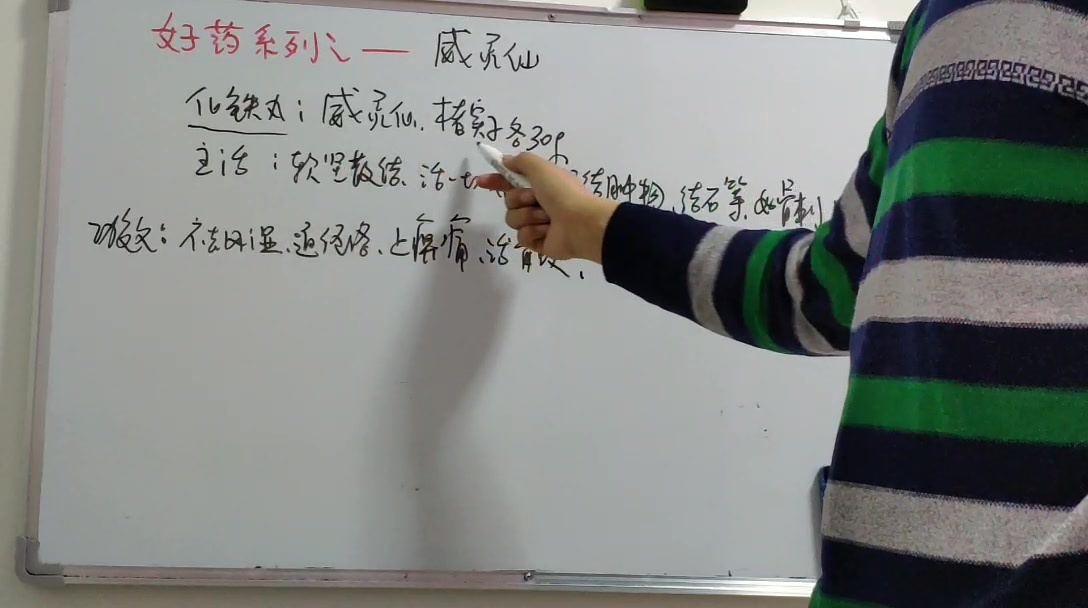 好药系列之一 威灵仙
化铁丸：威灵仙、楮实子各30g
主治：软坚散结、治一切 结肿物、结石等、如骨刺
功效：祛风湿、通经络、止痹痛、治骨